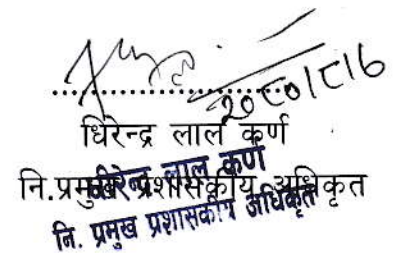 २०८०।८।६
धिरेन्द्र लाल कर्ण
नि.प्रमुख प्रशासकीय अधिकृत
धीरेन्द्र लाल कर्ण
नि. प्रमुख प्रशासकीय अधिकृत